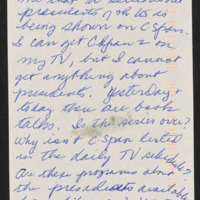 me that a series on
presidents of the US is
being shown on C Span.
I can get C Span 2 on
my TV, but I cannot
get anything about
presidents. Yesterday +
today there are book
talks. Is the series over?
Why isn't C Span listed
in the daily TV schedule?
Are these programs about
the presidents available